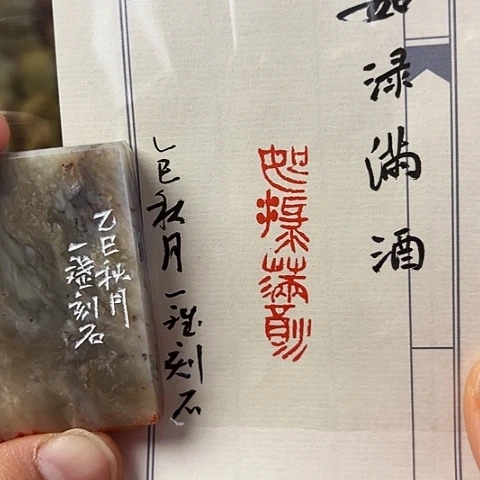 如渌满酒
乙巳秋月一刻石
乙巳秋月
一刻石